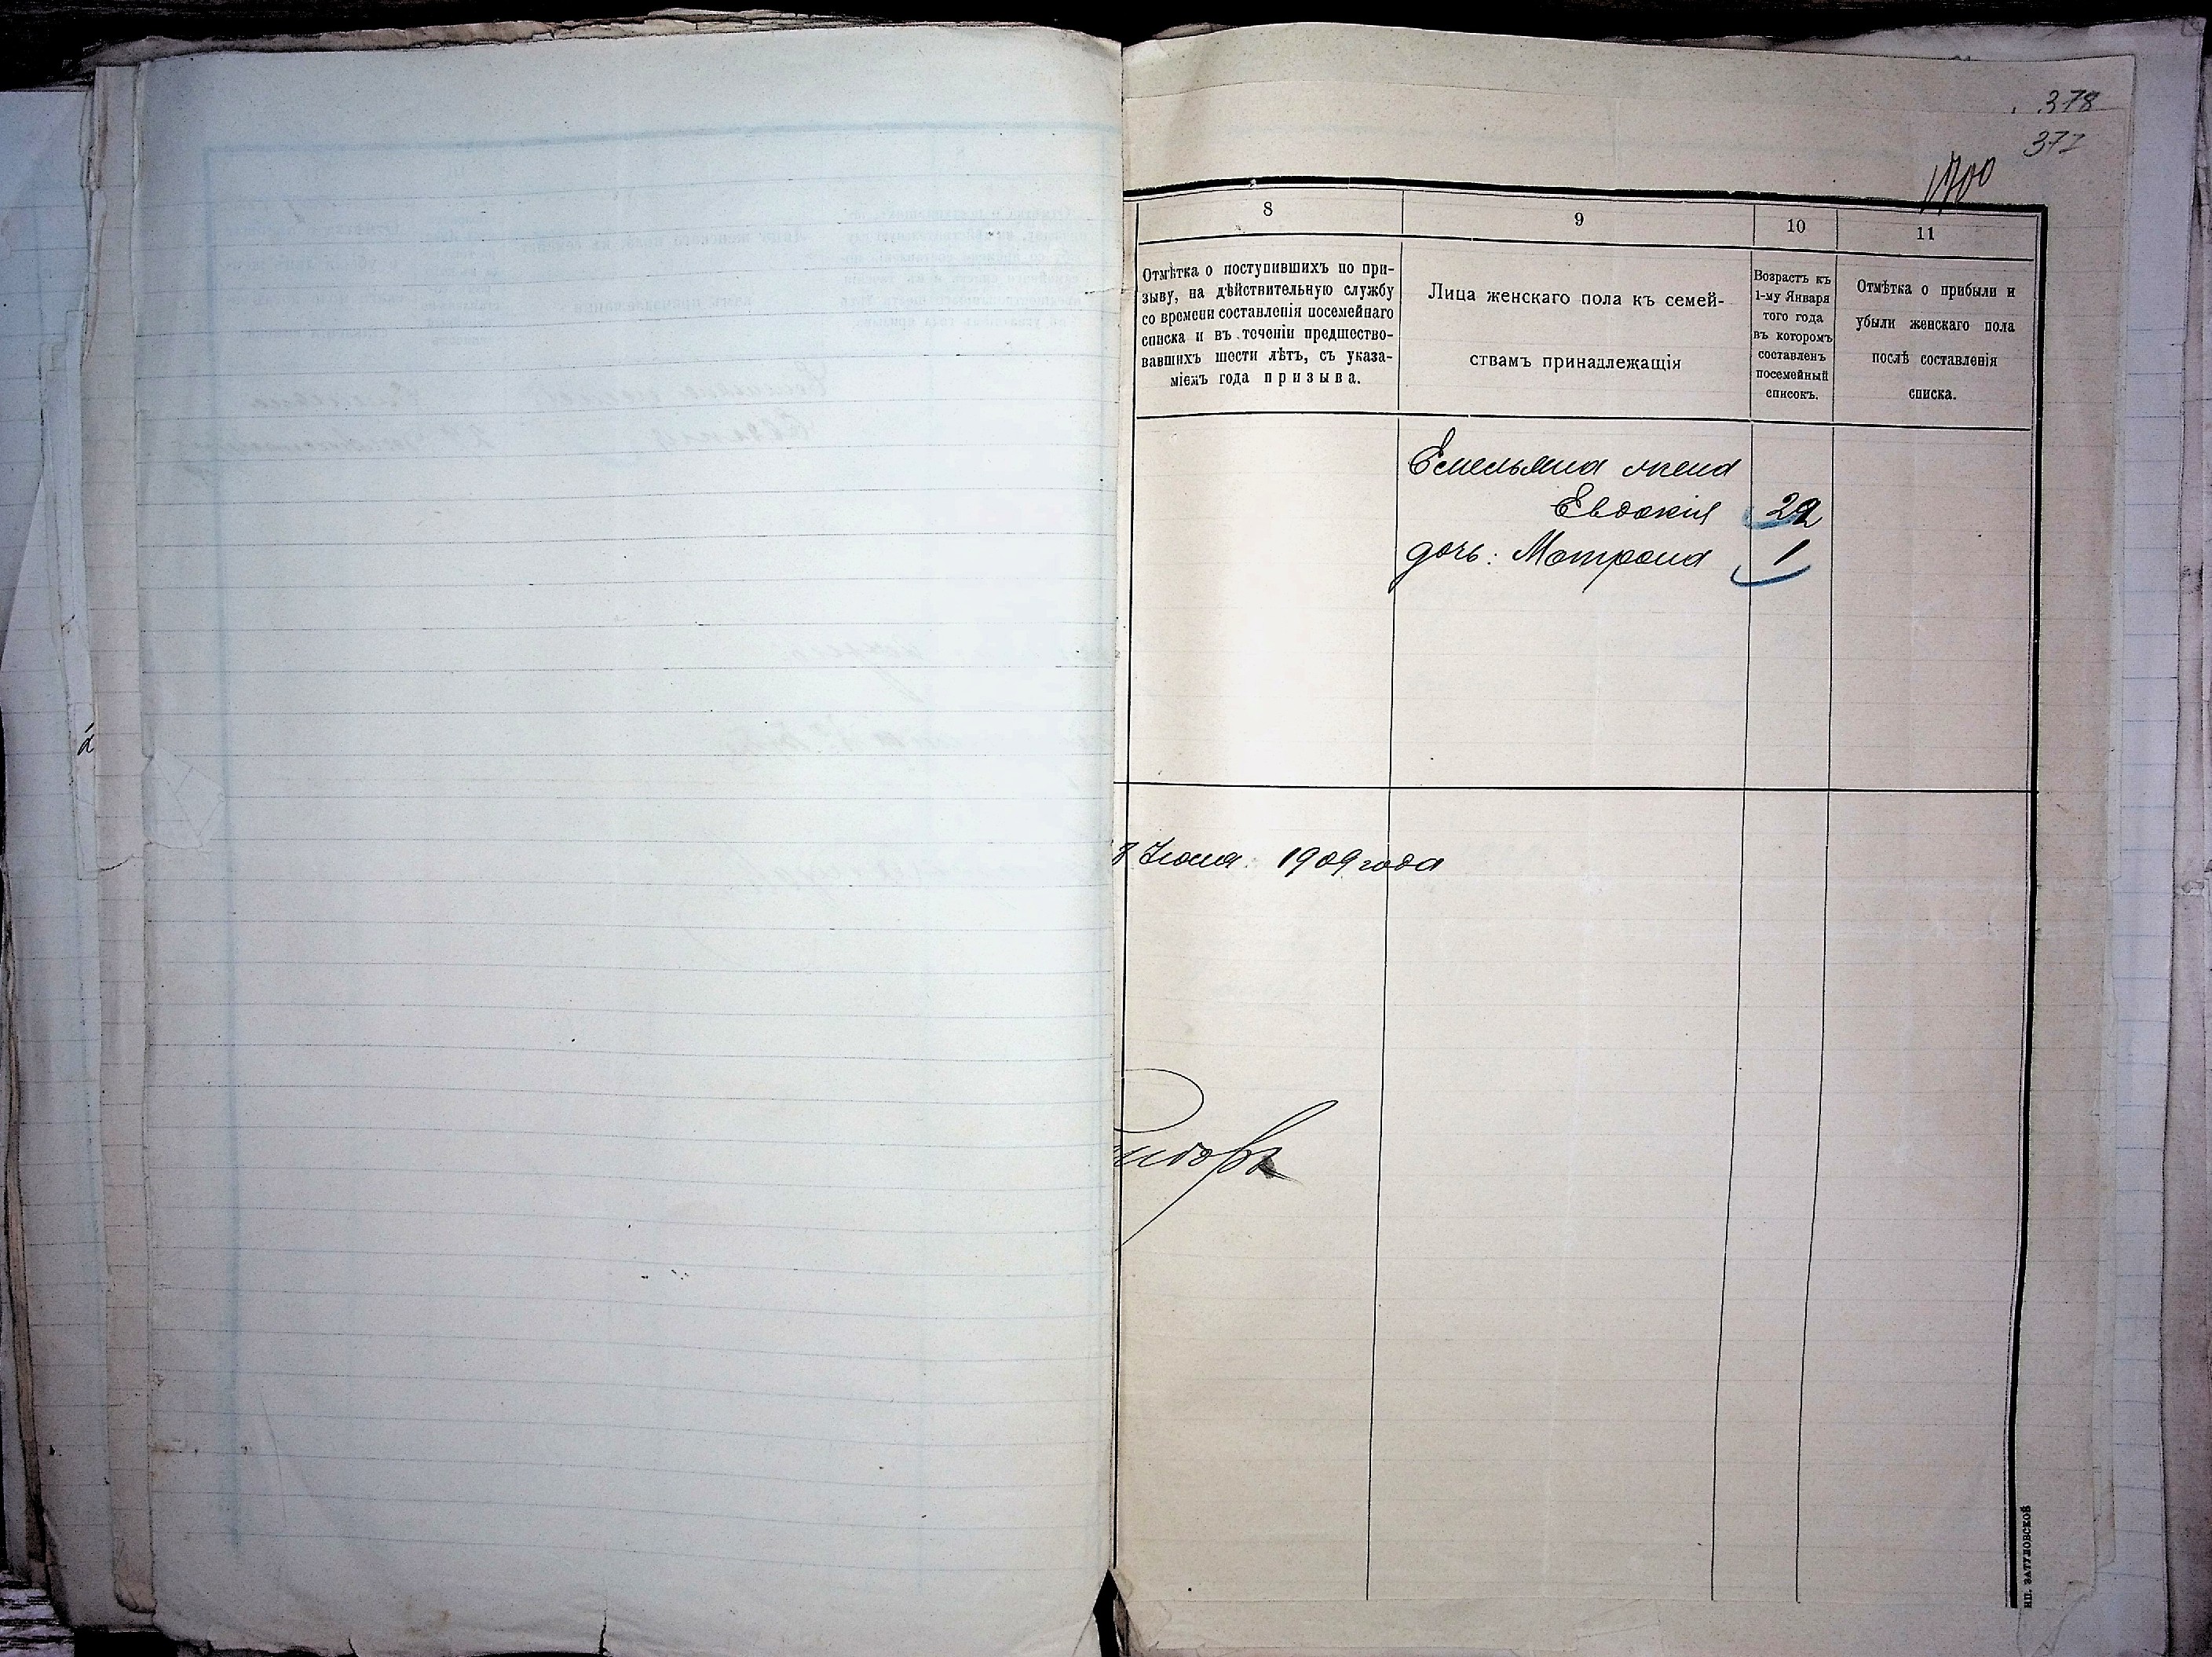 378
377
1700
8
9
10
11
Отмѣтка о поступившихъ по при-
зыву, на дѣйствительную службу
со времени составленія посемейнаго
списка и въ теченіи предшество-
вавшихъ шести лѣтъ, съ указа-
ніемъ года призыва.
Лица женскаго пола къ семей-
ствамъ принадлежащія
Возрастъ къ
1-му Января
того года
въ которомъ
составленъ
посемейный
списокъ.
Отмѣтка о прибыли и
убыли женскаго пола
послѣ составленія
списка.
Емельяна жена
Евдокія 22
дочь: Матрона 1
8 Іюня 1909 года
ИП. ЗАТУЛОВСКОЙ